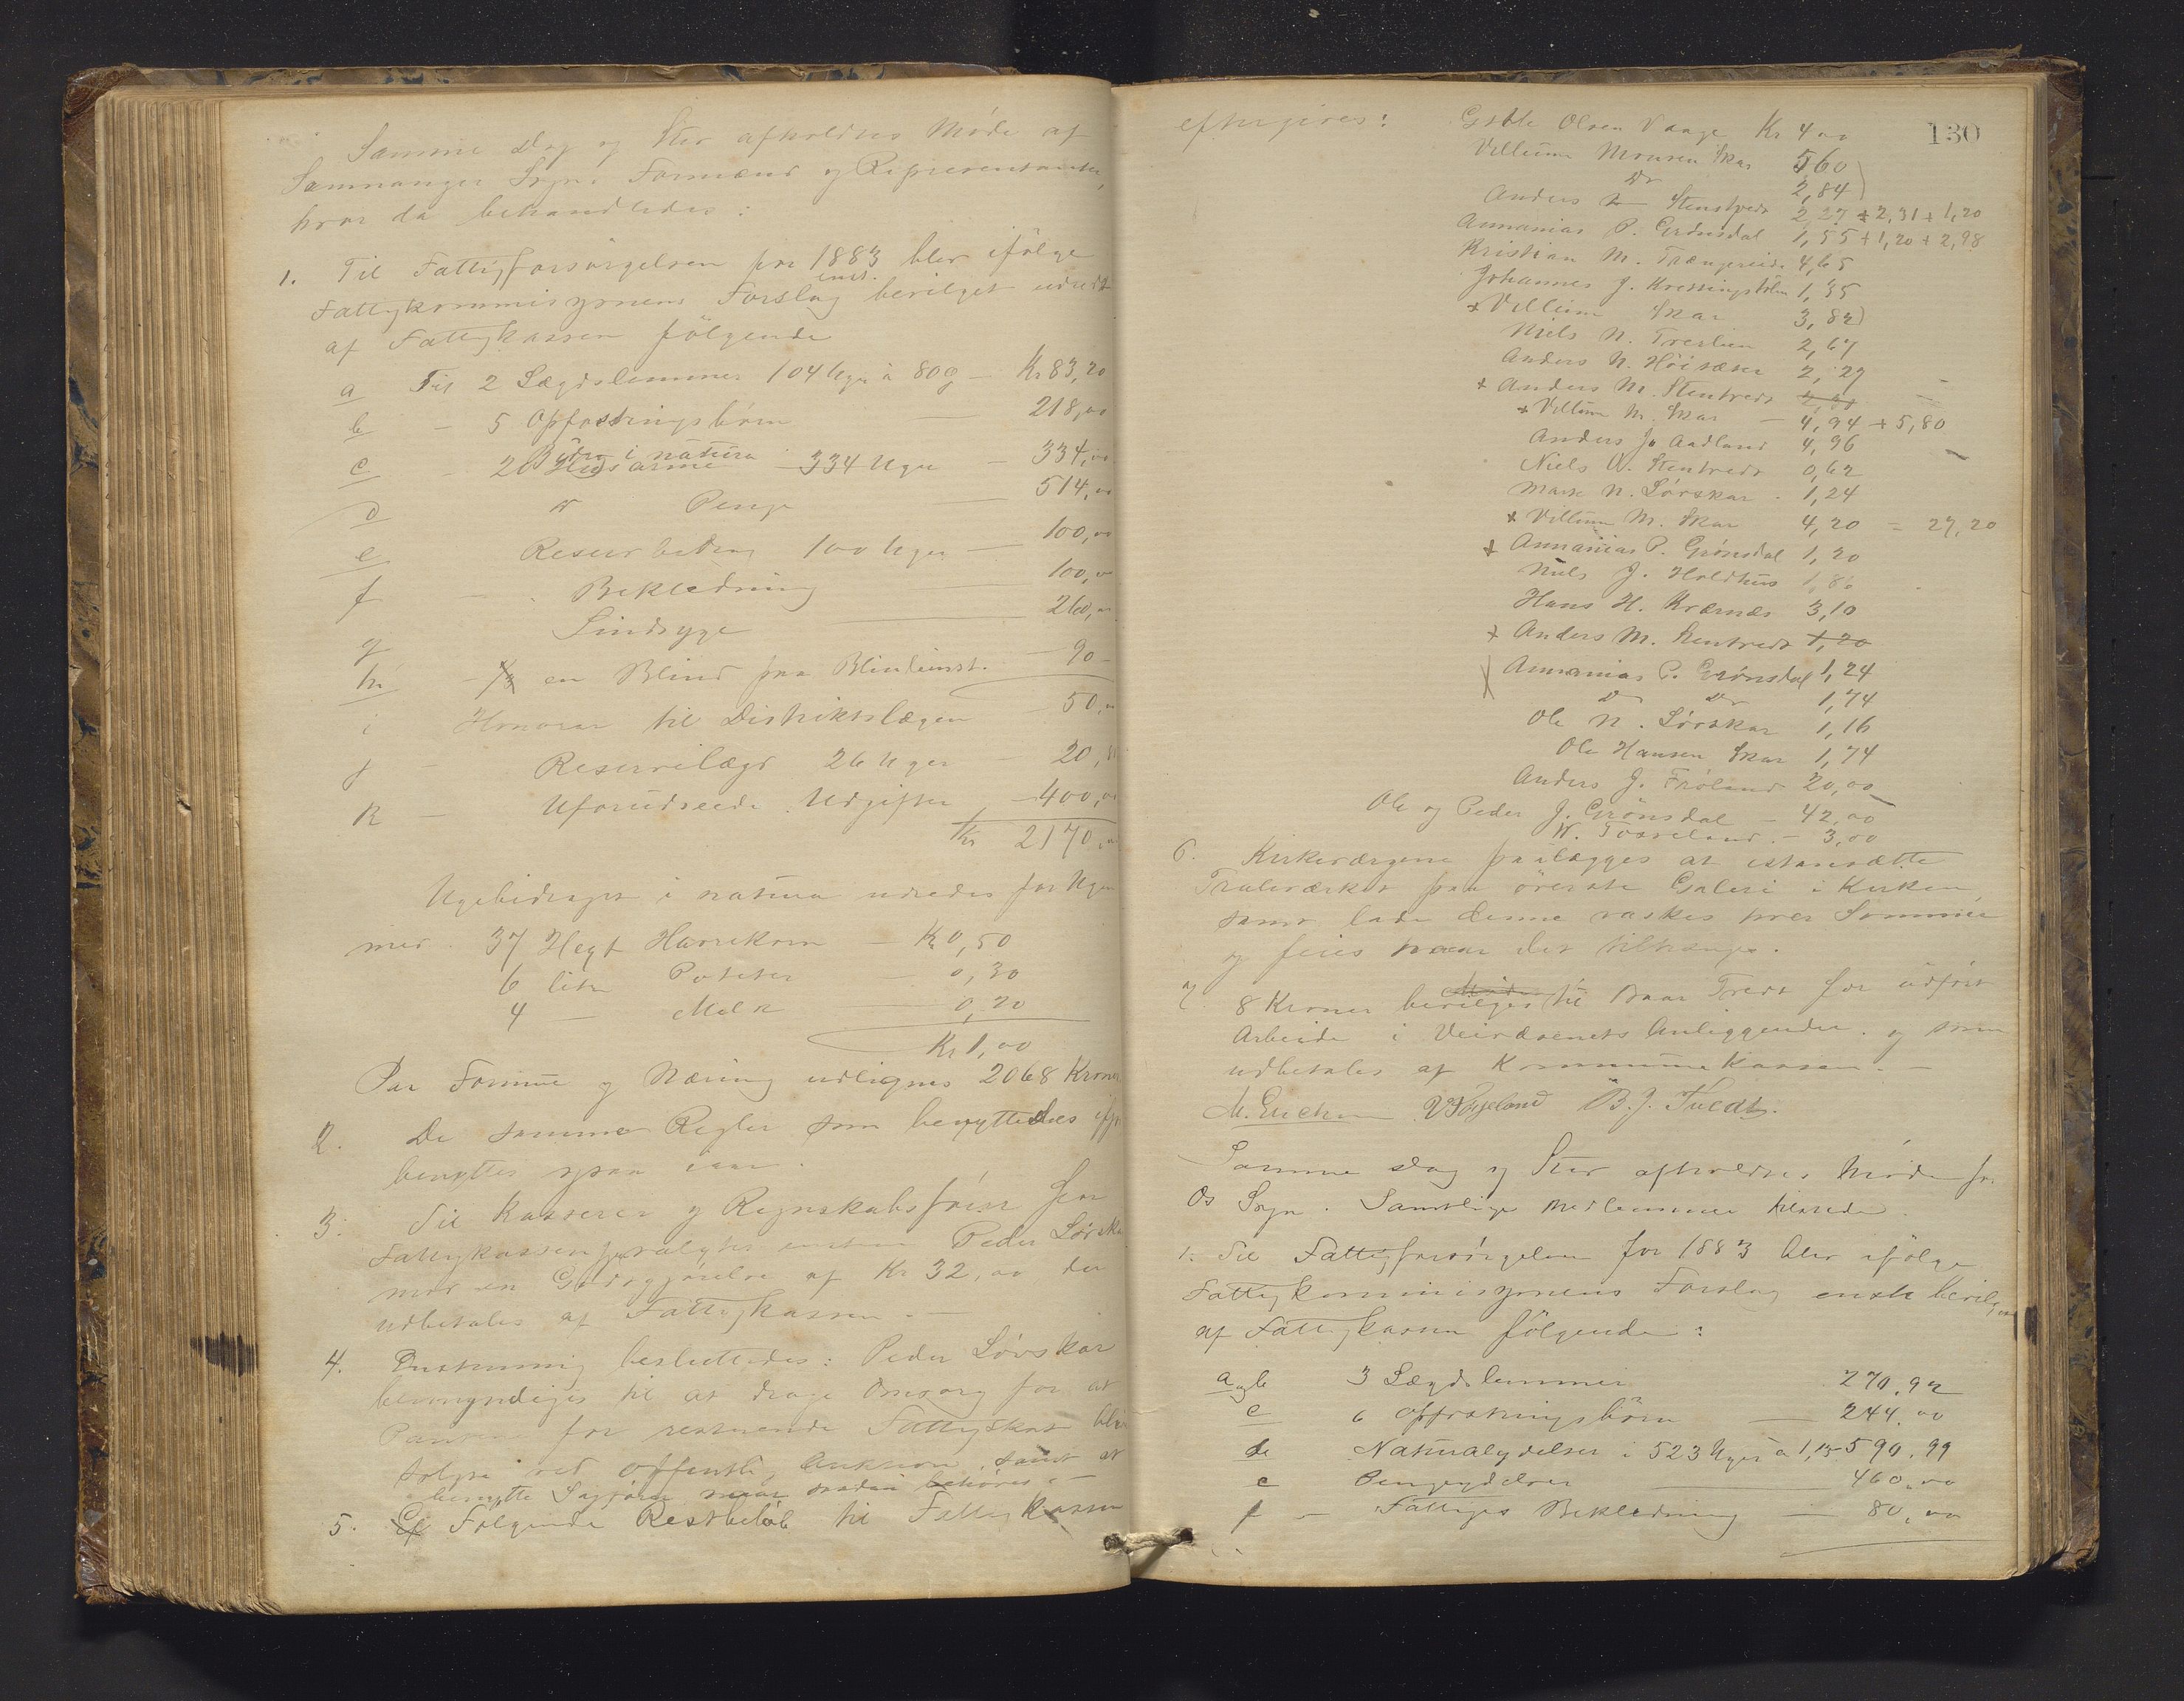 Samme Dag og Sted afholdtes Möde af
Samnanger Sogns Formænd og Repræsentanter,
hvor da behandledes:
1. Til Fattigforsörgelsen for 1883 blev ifölge
Fattigkommisjonens Forslag enst. bevilget udredt
af Fattigkassen fölgende
a Til 2 Lægdslemmer 104 Uger à 80 ø — Kr 83,20
b — 5 Opfostringsbörn — 218,00
c — 20 Husarme Bidr. i natura — 334 Uger — 334,00
d Do Penge — 514,00
e Reservebidrag 100 Uger — 100,00
f — Beklædning — 100,00
g Sindsyge — 260,00
h — en Blind paa Blindeinst. — 90 —
i Honorar til Distriktslægen — 50,00
j — Reservelægd 26 Uger — 20,80
k — Uforudseede Udgifter — 400,00
Kr 2170,00
Ugebidraget i natura udredes for Ugen
med 37 Hegt Havrekorn — Kr 0,50
6 liter Poteter — 0,30
4 — Melk — 0,20
Kr 1,00
Paa Formue og Næring udlignes 2068 Kroner
2. De samme Regler som benyttedes ifjor
benyttes ogsaa iaar.
3. Til Kasserer og Regnskabsförer for
Fattigkassen gjenvalgtes enstem Peder Lövskar
mod en Godtgjörelse af Kr 32,00 der
udbetales af Fattigkassen —
4. Enstemmig besluttedes: Peder Lövskar
bemyndiges til at drage Omsorg for at
Panten for resterende Fattigskat blive
solgte ved offentlig Auktion, samt at
benytte Sagförer naar saadan behöves —
5. Fölgende Restbelöb til Fattigkassen
130
eftergives: Gitle Olsen Vaage Kr 4,00
Villum Monsen Skar 5,60
Do 2,84
Anders Stentvedt 2,27 + 2,31 + 1,20
Annanias P. Grönsdal 1,55 + 1,20 + 2,98
Kristian M. Trængereid 4,65
Johannes J. 1,35
+ Villum Skar 3,82
Niels N. Treslien 2,67
Anders N. Höisæter 2,27
+ Anders M. Stentvedt
+ Villum M. Skar — 4,94 + 5,80
Anders J. Aadland 4,96
Niels A. Stentvedt 0,62
Mass N. Lövskar 1,24
+ Villum M. Skar 4,20 = 27,20
+ Annanias P. Grönsdal 1,20
Niels J. Holdhus 1,86
Hans H. Kvernæs 3,10
+ Anders M. Stentvedt 1,20
Annanias P. Grönsdal 1,24
Do Do 1,74
Ole N. Lövskar 1,16
Ole Hansen Skar 1,74
Anders J. Fröland 20,00
Ole og Peder J. Grönsdal — 42,00
N. Tösseland — 3,00
6. Kirkeværgerne paalægges at istandsætte
Traleværket paa överste Galeri i Kirken,
samt lade denne vaskes hver Sommer
og feies naar det tiltrænges.
7 8 Kroner bevilges til Baar Tvedt for udfört
Arbeide i Veivæsenets Anliggender og som
udbetales af Kommunekassen. —
B. J. Tvedt.
Samme Dag og Sted afholdtes Möde for
Os Sogn. Samtlige Medlemmer tilstede.
1. Til Fattigforsörgelsen for 1883 blev ifölge
Fattigkommisjonens Forslag enst. bevilget
af Fattigkassen fölgende:
a og b 3 Lægdslemmer 270,92
c 6 Opfostringsbörn — 244,00
d Naturalydelser i 523 Uger à 1,13 590,99
e Pengeydelser — 460,00
f — Fattiges Beklædning — 80,00